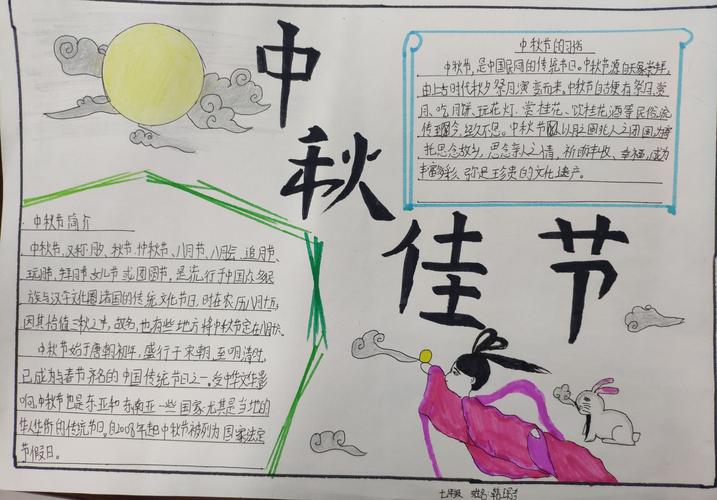 中秋佳节
中秋节的习俗
中秋节,是中国民间的传统节日。中秋节源自天象崇拜,
由上古时代秋夕祭月演变而来。中秋节自古便有祭月、赏
月、吃月饼、玩花灯、赏桂花、饮桂花酒等民俗,流
传至今,经久不息。中秋节以月之圆兆人之团圆,为寄
托思念故乡,思念亲人之情,祈盼丰收、幸福,成为
丰富多彩、弥足珍贵的文化遗产。
中秋节简介
中秋节,又称月夕、秋节、仲秋节、八月节、八月会、追月节、
玩月节、拜月节、女儿节或团圆节,是流行于中国众多民
族与汉字文化圈诸国的传统文化节日,时在农历八月十五,
因其恰值三秋之半,故名,也有些地方将中秋节定在八月十六。
中秋节始于唐朝初年,盛行于宋朝,至明清时,
已成为与春节齐名的中国传统节日之一。受中华文化影
响,中秋节也是东亚和东南亚一些国家尤其是当地的
华人华侨的传统节日。自2008年起中秋节被列为国家法定
节假日。
七年级 姓名:韩